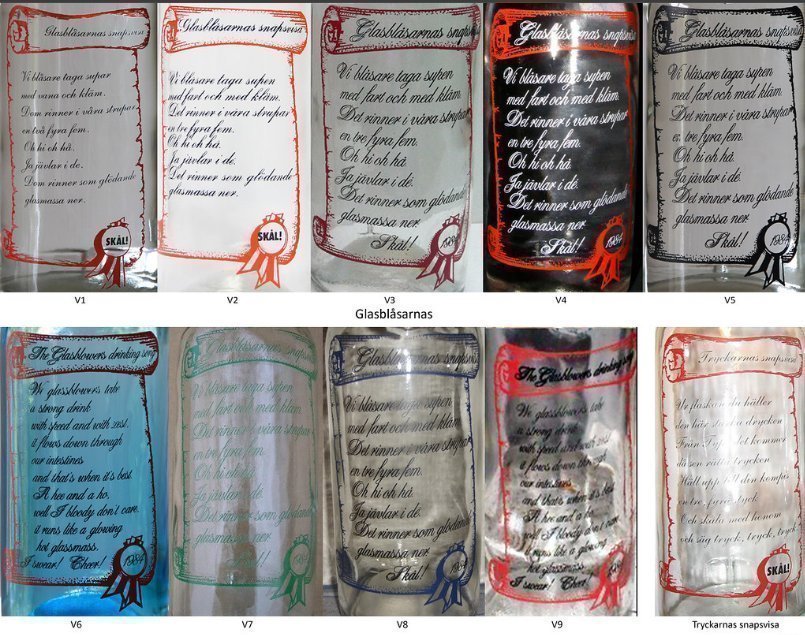 Glasblåsarnas snapsvisa
Vi blåsare taga supar
med vana och kläm.
Dom rinner i våra strupar
en två fyra fem.
Oh hi oh hå.
Ja jävlar i de.
Dom rinner som glödande
glasmassa ner.
SKÅL!
V1
Glasblåsarnas snapsvisa
Vi blåsare taga supen
med fart och med kläm.
Det rinner i våra strupar
en tre fyra fem.
Oh hi oh hå.
Ja jävlar i de.
Det rinner som glödande
glasmassa ner.
SKÅL!
V2
Glasblåsarnas snapsvisa
Vi blåsare taga supen
med fart och med kläm.
Det rinner i våra strupar
en tre fyra fem.
Oh hi oh hå
Ja jävlar i de.
Det rinner som glödande
glasmassa ner.
Skål!
1984
V3
Glasblåsarnas snapsvisa
Vi blåsare taga supen
med fart och med kläm.
Det rinner i våra strupar
en tre fyra fem.
Oh hi oh hå
Ja jävlar i de.
Det rinner som glödande
glasmassa ner.
Skål!
1984
V4
Glasblåsarnas snapsvisa
Vi blåsare taga supen
med fart och med kläm.
Det rinner i våra strupar
en tre fyra fem.
Oh hi oh hå
Ja jävlar i de.
Det rinner som glödande
glasmassa ner.
Skål!
1984
V5
Glasblåsarnas
The Glasblowers drinking song
We glassblowers take
a strong drink
with speed and with zest.
it flows down through
our intestines
and that's when it's best.
A hee and a ho,
well I bloody don't care.
it runs like a glowing
hot glassmass.
I swear! Cheer!
1984
V6
Glasblåsarnas snapsvisa
Vi blåsare taga supen
med fart och med kläm.
Det rinner i våra strupar
en tre fyra fem.
Oh hi oh hå
Ja jävlar i de.
Det rinner som glödande
glasmassa ner.
Skål!
1984
V7
Glasblåsarnas snapsvisa
Vi blåsare taga supen
med fart och med kläm.
Det rinner i våra strupar
en tre fyra fem.
Oh hi oh hå
Ja jävlar i de.
Det rinner som glödande
glasmassa ner.
Skål!
1984
V8
The Glasblowers drinking song
We glassblowers take
a strong drink
with speed and with zest.
it flows down through
our intestines
and that's when it's best.
A hee and a ho,
well I bloody don't care.
it runs like a glowing
hot glassmass.
I swear! Cheer!
1984
V9
Tryckarnas snapsvisa
Ur flaskan du häller
den här starka drycken
Från det kommer
Häll upp till den
en tre, fyra tryck
Och skåla med honom
och säg tryck, tryck, tryck
SKÅL!
Tryckarnas snapsvisa